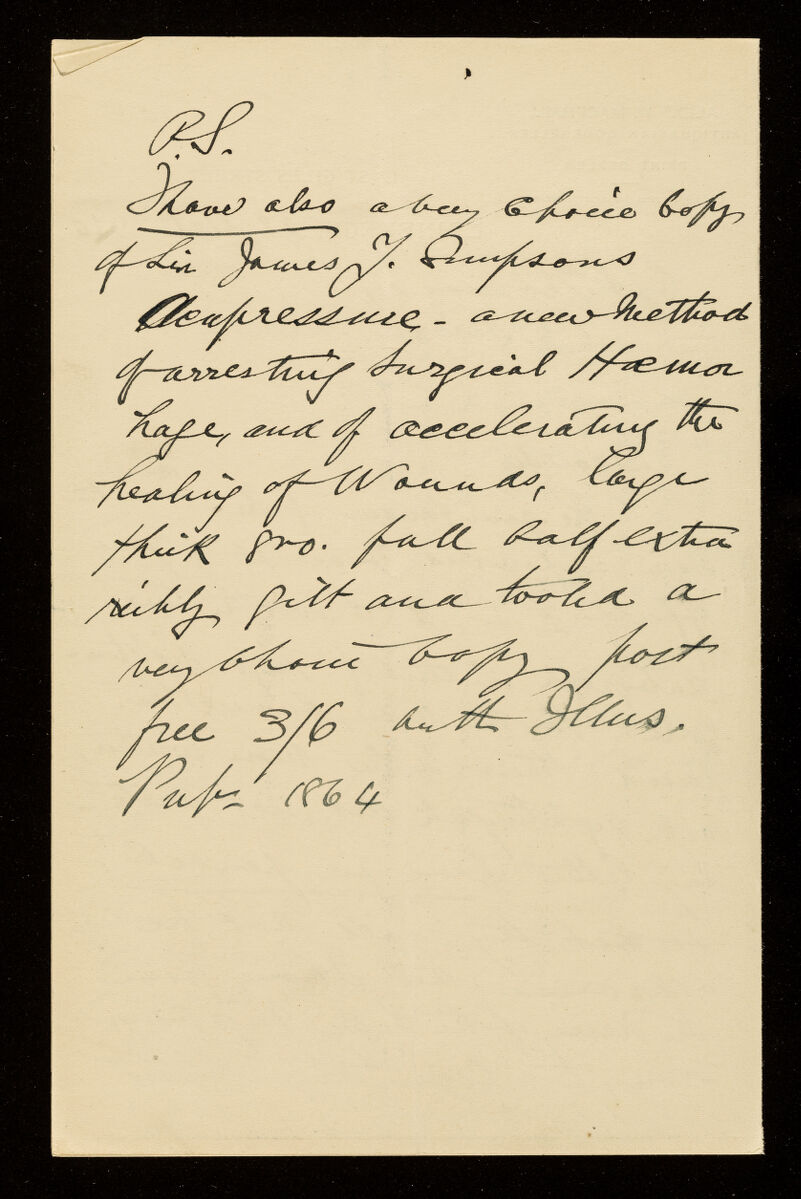 P.S.
I have also a very choice copy
of Sir James Y. Simpsons
Acupressure - a new Method
of arresting Surgical Hæmor
hage, and of accelerating the
healing of Wounds, large
thick 8vo. full calf extra
richly gilt and tooled a
very choice copy post
free 3/6 with Illus.
Pub- 1864